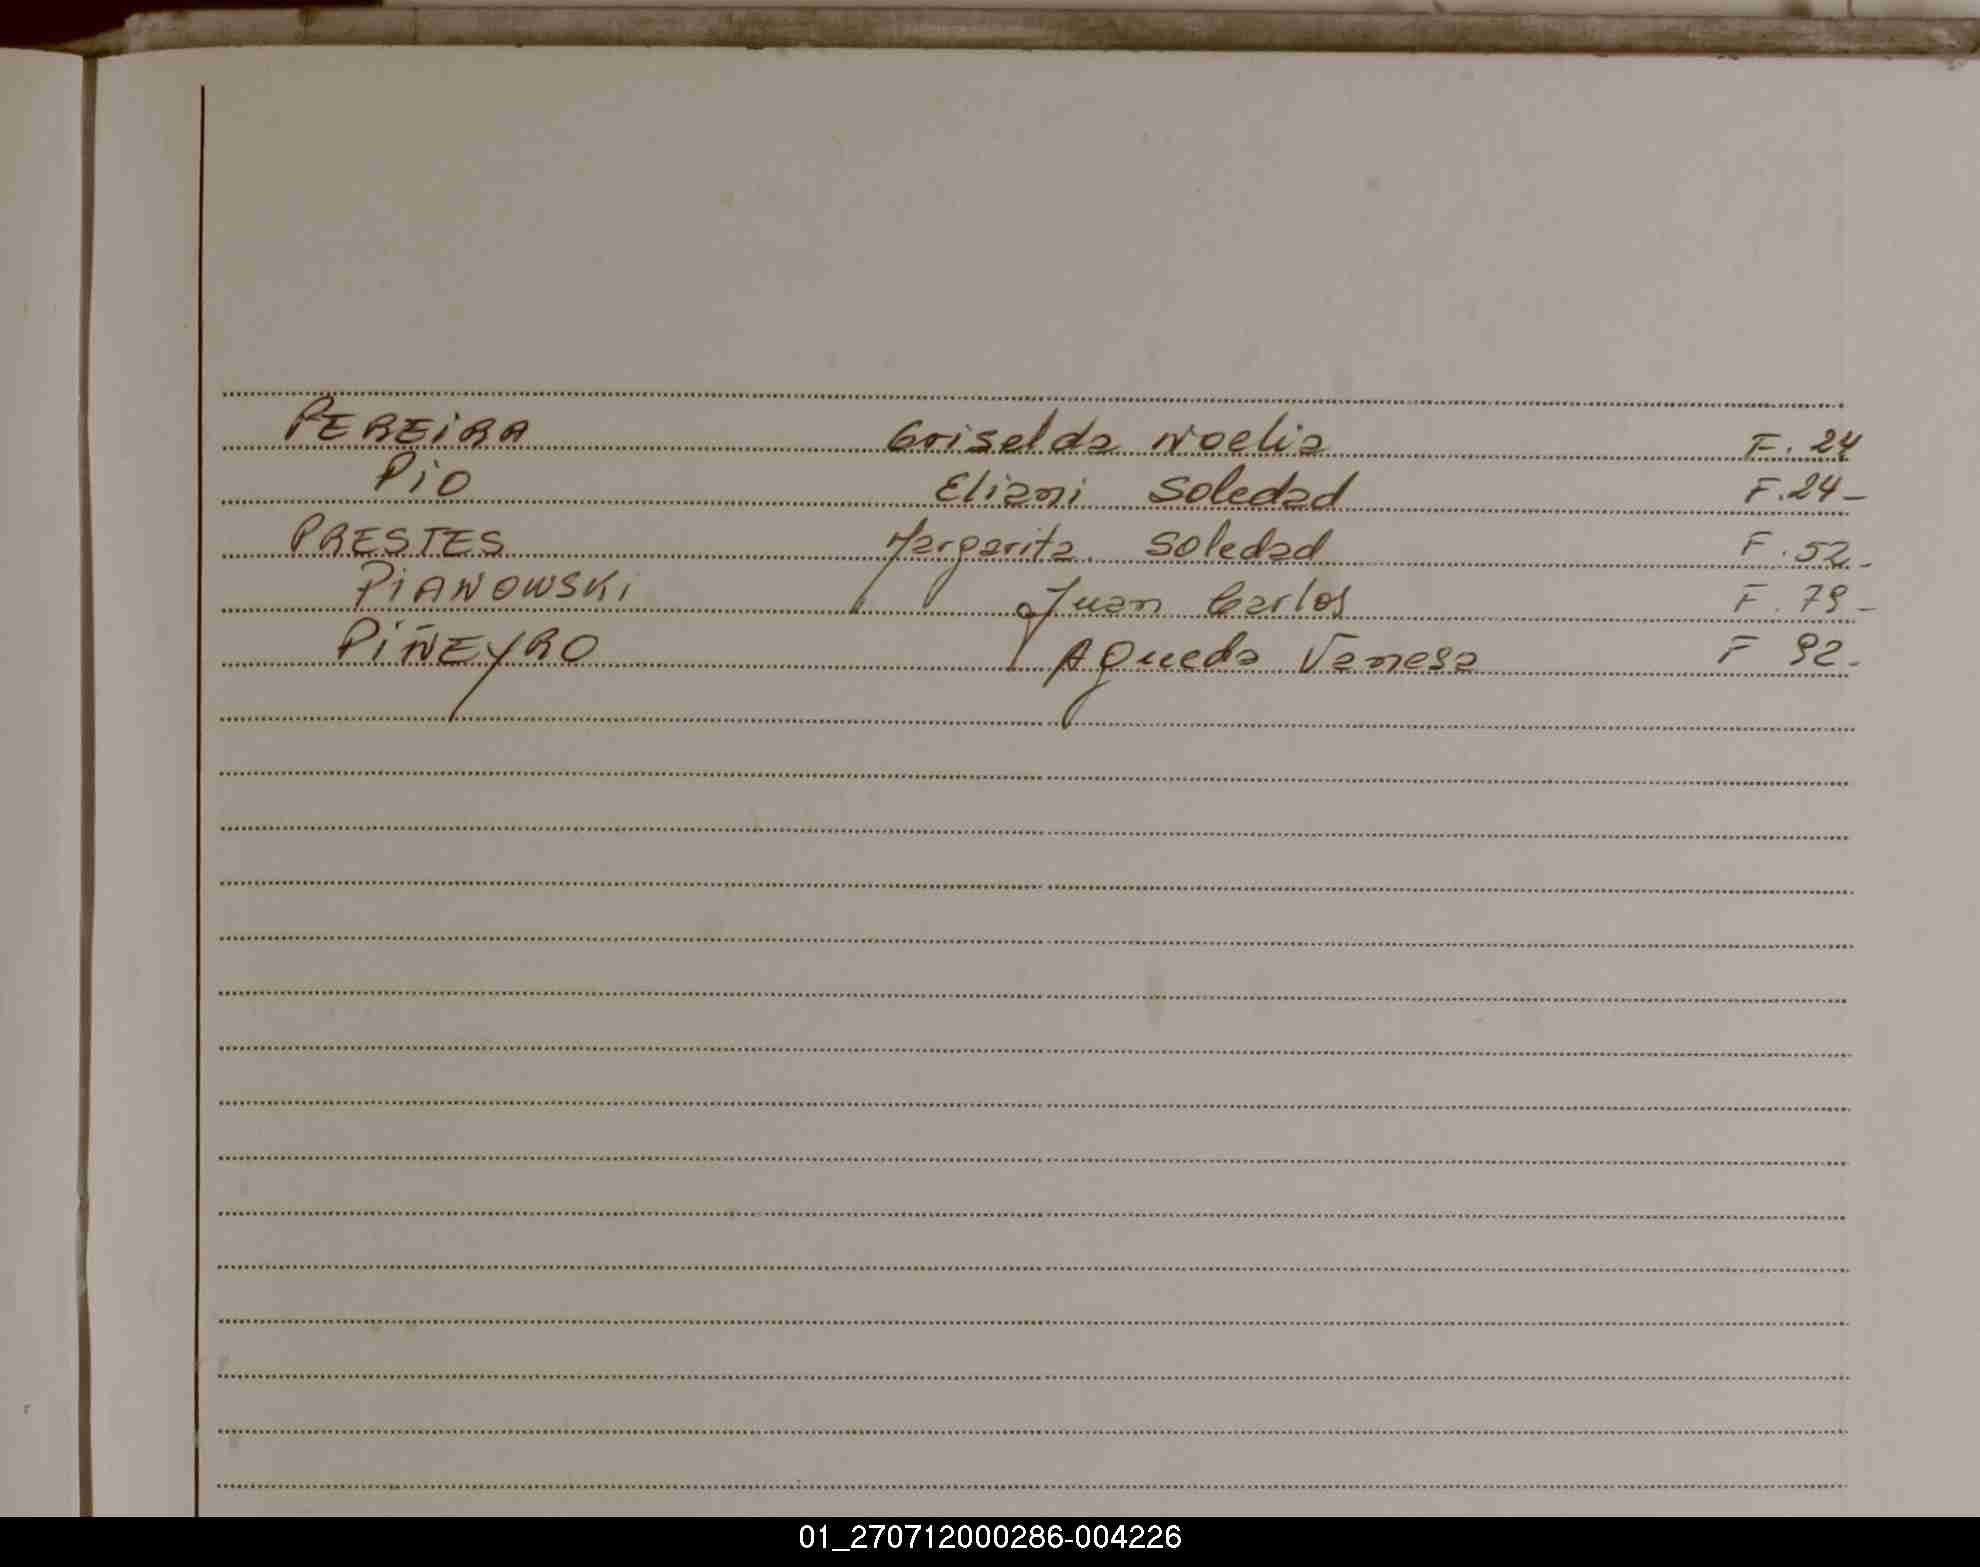 PEREIRA Griselda Noelia F. 24
PIO Eliani Soledad F. 24-
PRESTES Margarita Soledad F. 52-
PIANOWSKI Juan Carlos F. 79-
PIÑEYRO Agueda Vanesa F 92-
01_270712000286-004226